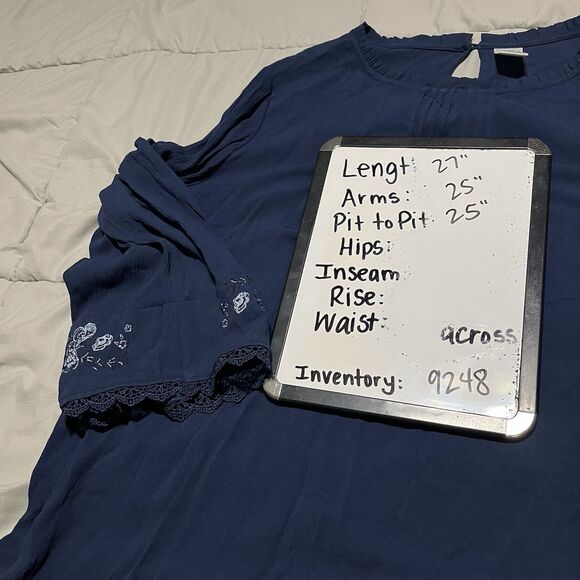 Lengt 27"
Arms: 25"
Pit to Pit 25"
Hips:
Inseam
Rise:
Waist:
across
Inventory: 9248